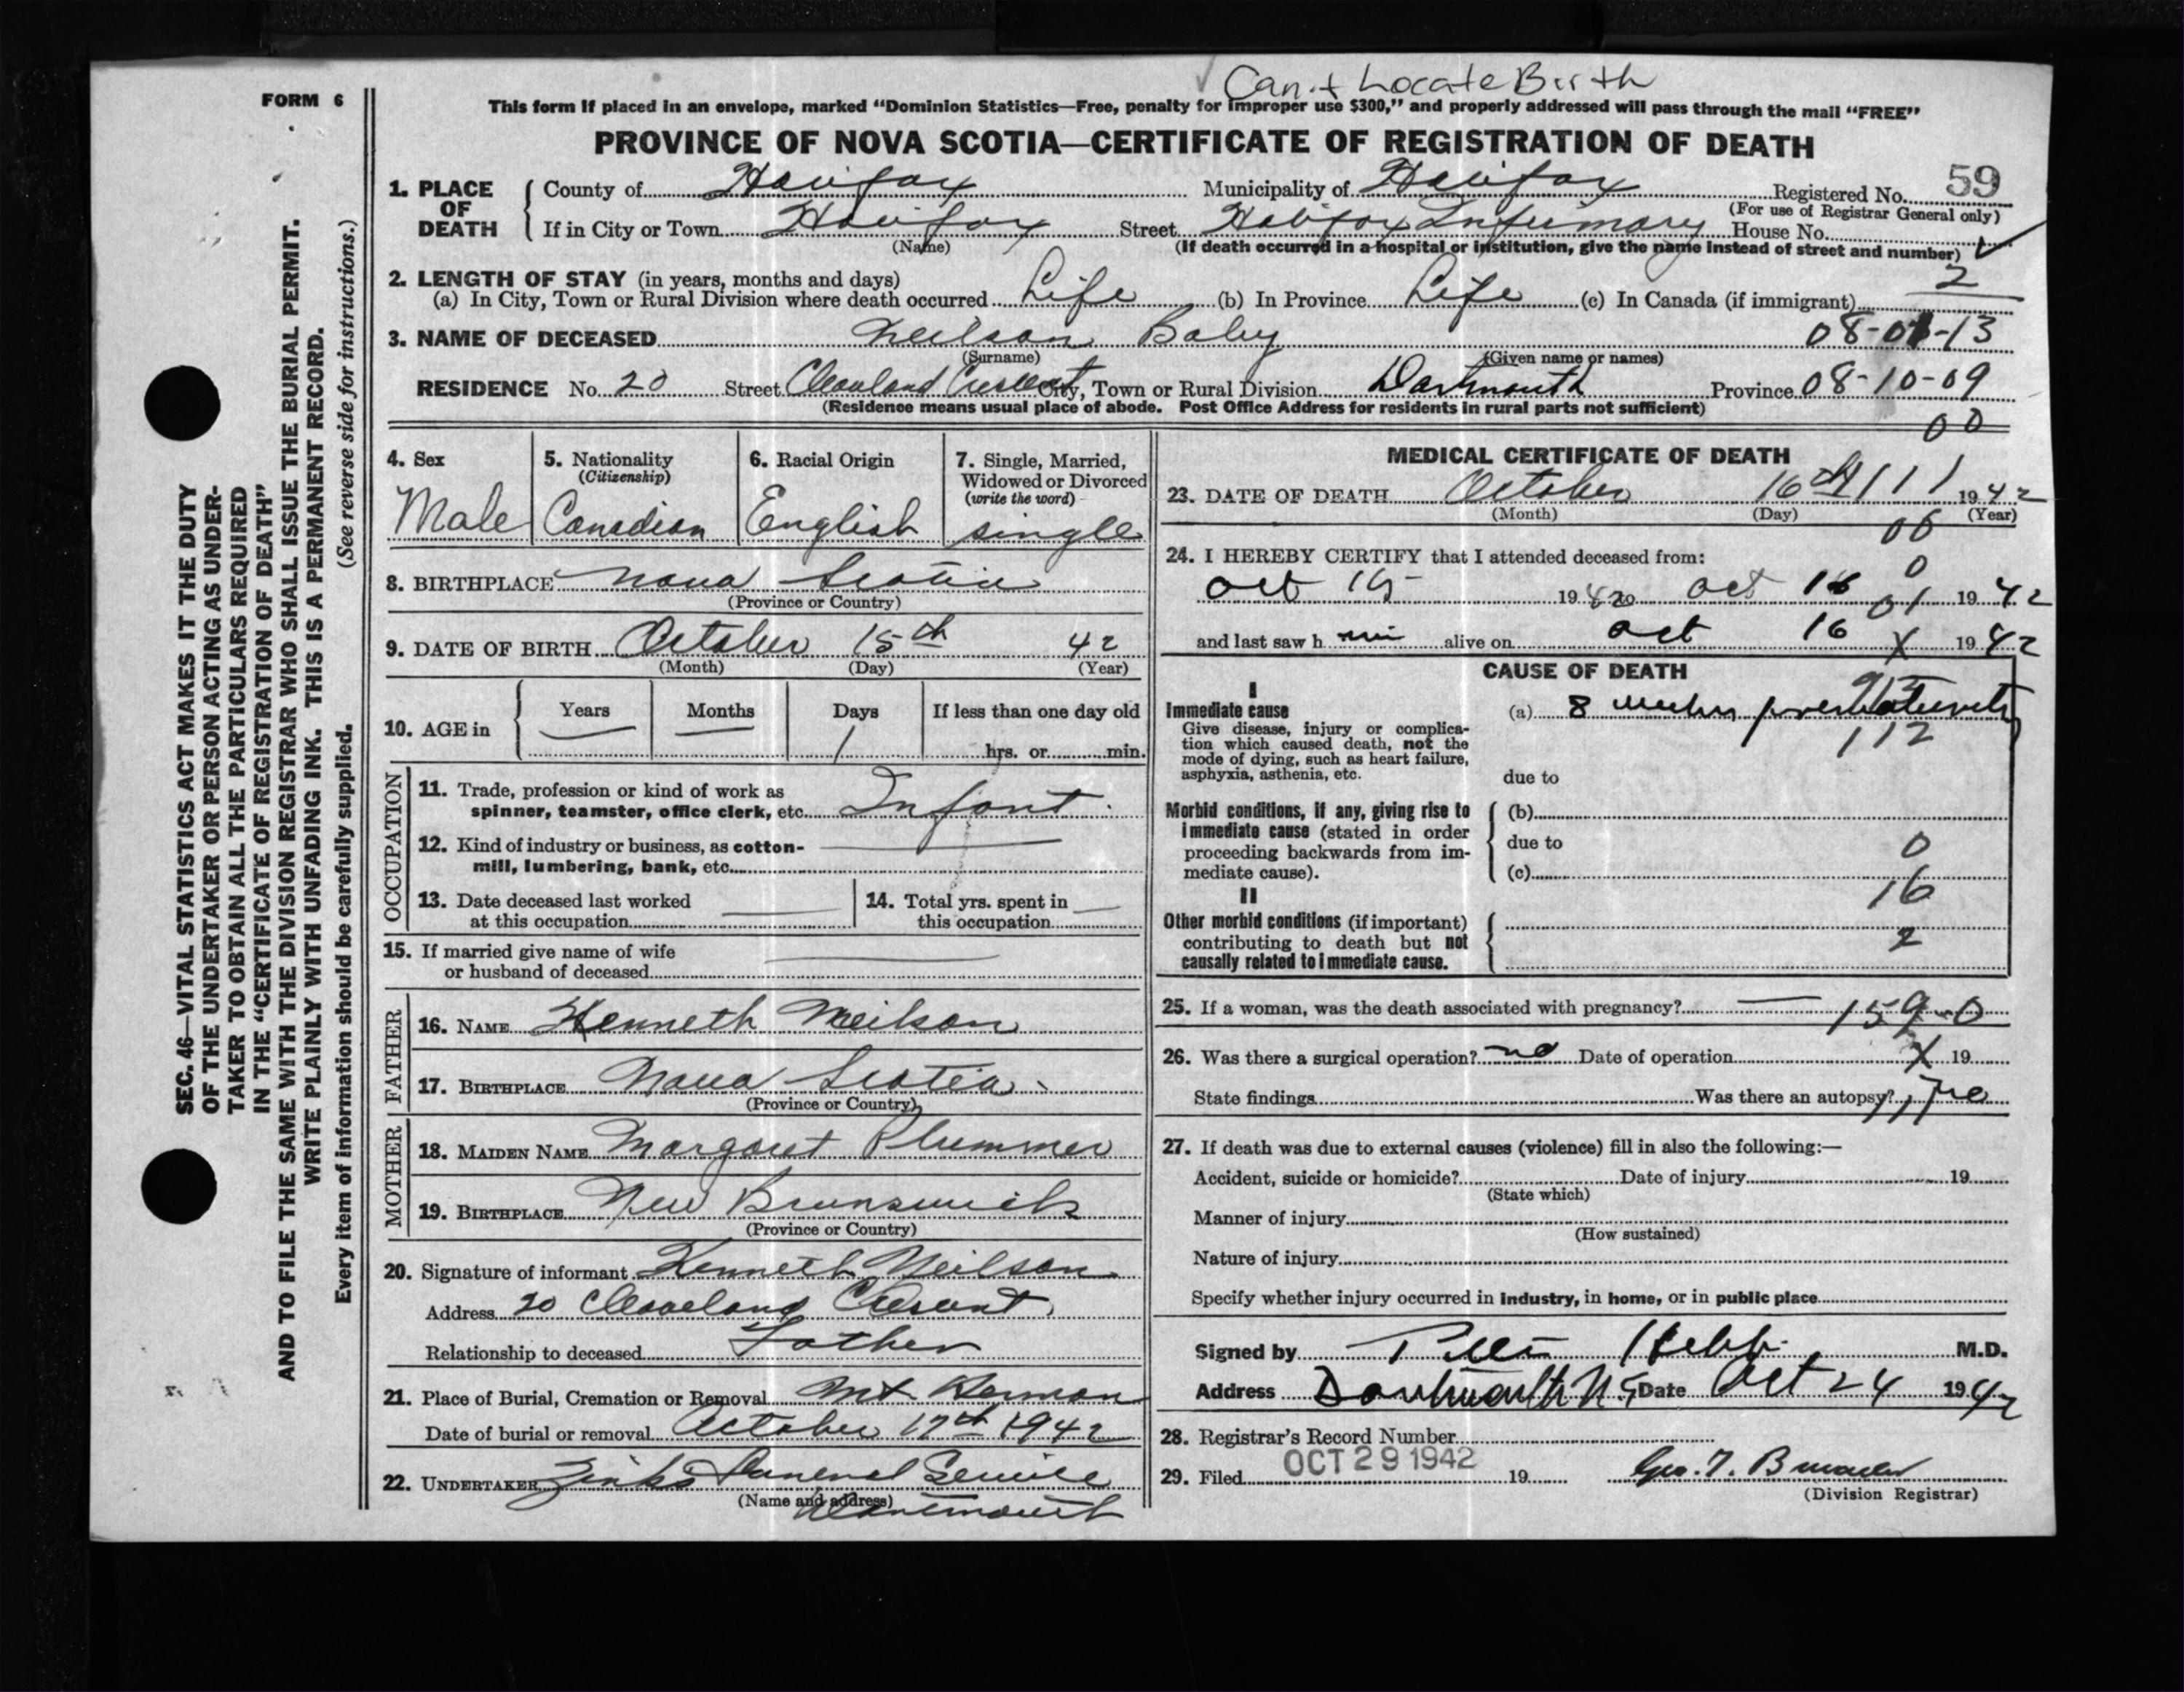 Can't Locate Birth
FORM 6
This form if placed in an envelope, marked "Dominion Statistics—Free, penalty for improper use $300," and properly addressed will pass through the mail "FREE"
PROVINCE OF NOVA SCOTIA—CERTIFICATE OF REGISTRATION OF DEATH
SEC. 46—VITAL STATISTICS ACT MAKES IT THE DUTY
OF THE UNDERTAKER OR PERSON ACTING AS UNDER-
TAKER TO OBTAIN ALL THE PARTICULARS REQUIRED
IN THE "CERTIFICATE OF REGISTRATION OF DEATH"
AND TO FILE THE SAME WITH THE DIVISION REGISTRAR WHO SHALL ISSUE THE BURIAL PERMIT.
WRITE PLAINLY WITH UNFADING INK. THIS IS A PERMANENT RECORD.
Every item of information should be carefully supplied. (See reverse side for instructions.)
1. PLACE OF DEATH County of Halifax Municipality of Halifax Registered No. 59
(For use of Registrar General only)
If in City or Town Halifax Street Halifax Infirmary House No.
(Name) (If death occurred in a hospital or institution, give the name instead of street and number)
2. LENGTH OF STAY (in years, months and days) 2
(a) In City, Town or Rural Division where death occurred Life (b) In Province Life (c) In Canada (if immigrant)
3. NAME OF DECEASED Neilson Baby 08-01-13
(Surname) (Given name or names)
RESIDENCE No. 20 Street Cleaveland Crescent City, Town or Rural Division Dartmouth Province 08-10-09
(Residence means usual place of abode. Post Office Address for residents in rural parts not sufficient)
00
4. Sex 5. Nationality (Citizenship) 6. Racial Origin 7. Single, Married, Widowed or Divorced (write the word)
Male Canadian English single
8. BIRTHPLACE Nova Scotia
(Province or Country)
9. DATE OF BIRTH October 15th 42
(Month) (Day) (Year)
10. AGE in Years Months Days If less than one day old
— — 1 hrs. or min.
OCCUPATION
11. Trade, profession or kind of work as
spinner, teamster, office clerk, etc. Infant
12. Kind of industry or business, as cotton-
mill, lumbering, bank, etc.
13. Date deceased last worked at this occupation 14. Total yrs. spent in this occupation
15. If married give name of wife
or husband of deceased
FATHER
16. NAME Kenneth Neilson
17. BIRTHPLACE Nova Scotia
(Province or Country)
MOTHER
18. MAIDEN NAME Margaret Plummer
19. BIRTHPLACE New Brunswick
(Province or Country)
20. Signature of informant Kenneth Neilson
Address 20 Cleaveland Cresent
Relationship to deceased Father
21. Place of Burial, Cremation or Removal Mt. Hermon
Date of burial or removal October 17th 1942
22. UNDERTAKER Zinks Funeral Service
(Name and address) Dartmouth
MEDICAL CERTIFICATE OF DEATH
23. DATE OF DEATH October 16th 1942
(Month) (Day) (Year)
06
24. I HEREBY CERTIFY that I attended deceased from:
0
Oct 15 1942 to Oct 16 01 1942
and last saw h im alive on Oct 16 X 1942
CAUSE OF DEATH
I
Immediate cause
Give disease, injury or complica-
tion which caused death, not the
mode of dying, such as heart failure,
asphyxia, asthenia, etc.
(a) 8 weeks prematurity
112
due to
Morbid conditions, if any, giving rise to
immediate cause (stated in order
proceeding backwards from im-
mediate cause).
(b)
due to 0
(c)
16
II
Other morbid conditions (if important)
contributing to death but not
causally related to immediate cause.
2
25. If a woman, was the death associated with pregnancy? — 159-0
26. Was there a surgical operation? no Date of operation X 19
State findings Was there an autopsy?
27. If death was due to external causes (violence) fill in also the following:—
Accident, suicide or homicide? Date of injury 19
(State which)
Manner of injury
(How sustained)
Nature of injury
Specify whether injury occurred in industry, in home, or in public place
Signed by Hebb M.D.
Address Dartmouth N.S. Date Oct 24 1942
28. Registrar's Record Number
29. Filed OCT 29 1942 19 Geo. T.
(Division Registrar)